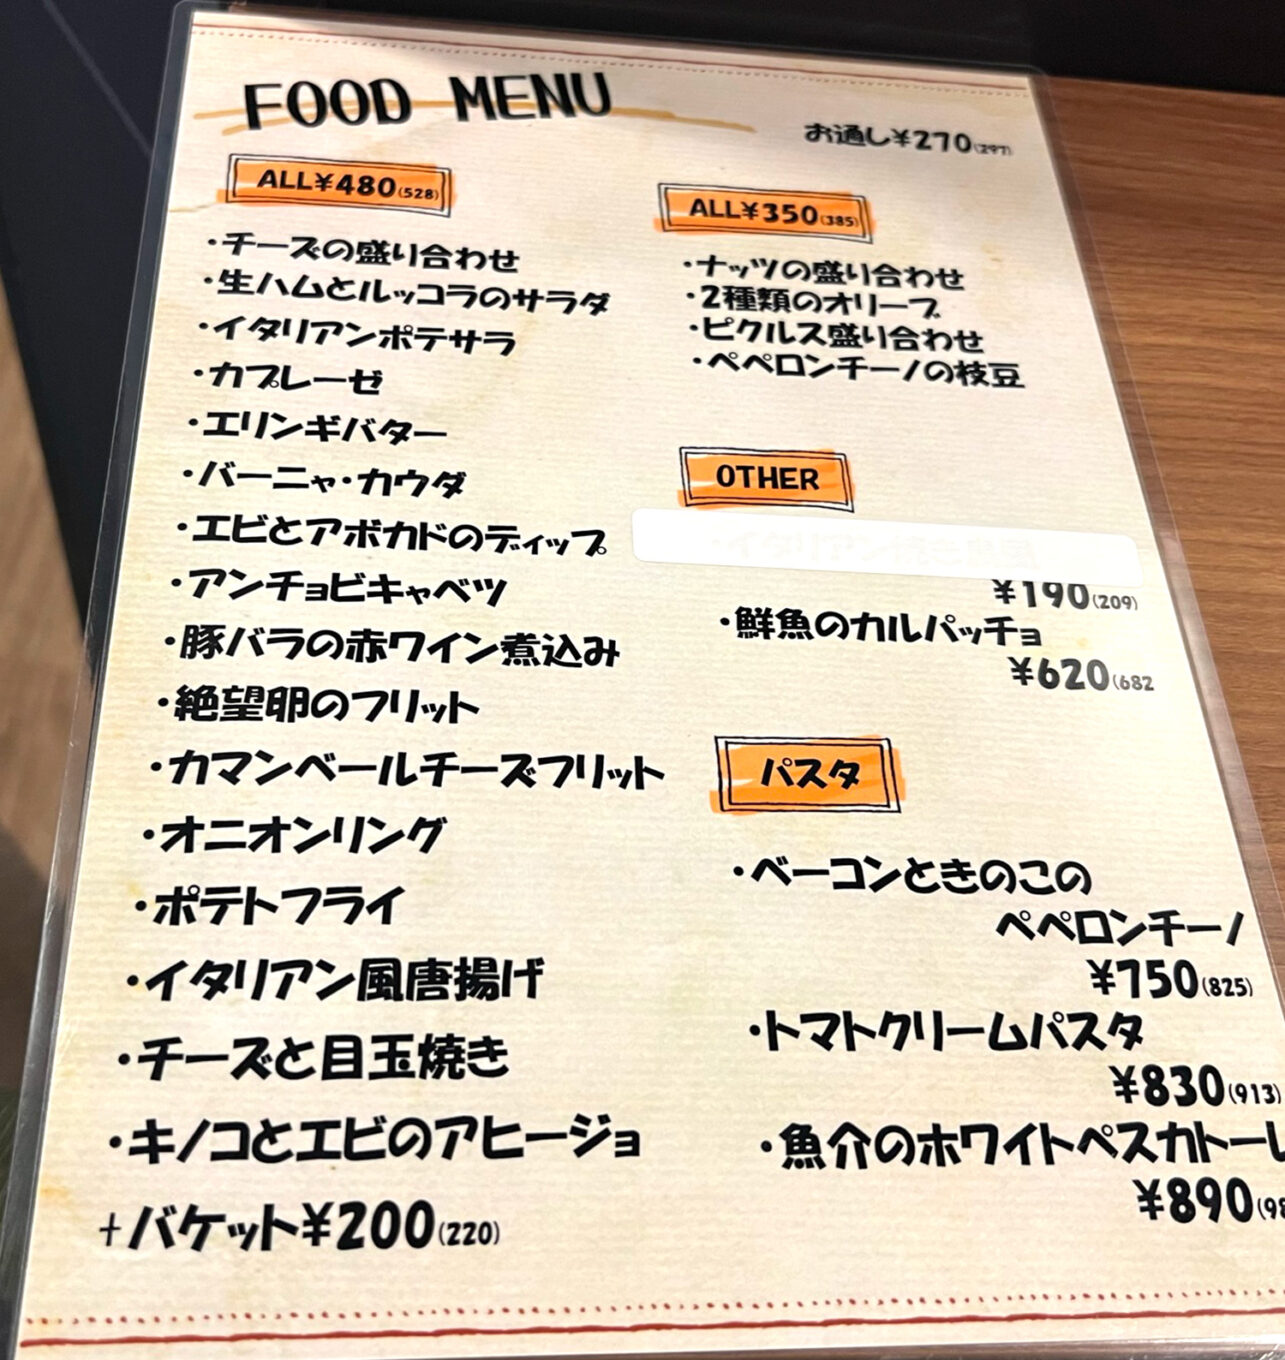 FOOD MENU
お通し¥270(297)
ALL¥480(528)
・チーズの盛り合わせ
・生ハムとルッコラのサラダ
・イタリアンポテサラ
・カプレーゼ
・エリンギバター
・バーニャ・カウダ
・エビとアボカドのディップ
・アンチョビキャベツ
・豚バラの赤ワイン煮込み
・絶望卵のフリット
・カマンベールチーズフリット
・オニオンリング
・ポテトフライ
・イタリアン風唐揚げ
・チーズと目玉焼き
・キノコとエビのアヒージョ
+バケット¥200(220)
ALL¥350(385)
・ナッツの盛り合わせ
・2種類のオリーブ
・ピクルス盛り合わせ
・ペペロンチーノの枝豆
OTHER
¥190(209)
・鮮魚のカルパッチョ
¥620(682
パスタ
・ベーコンときのこの
ペペロンチーノ
¥750(825)
・トマトクリームパスタ
¥830(913)
・魚介のホワイトペスカトーレ
¥890(98